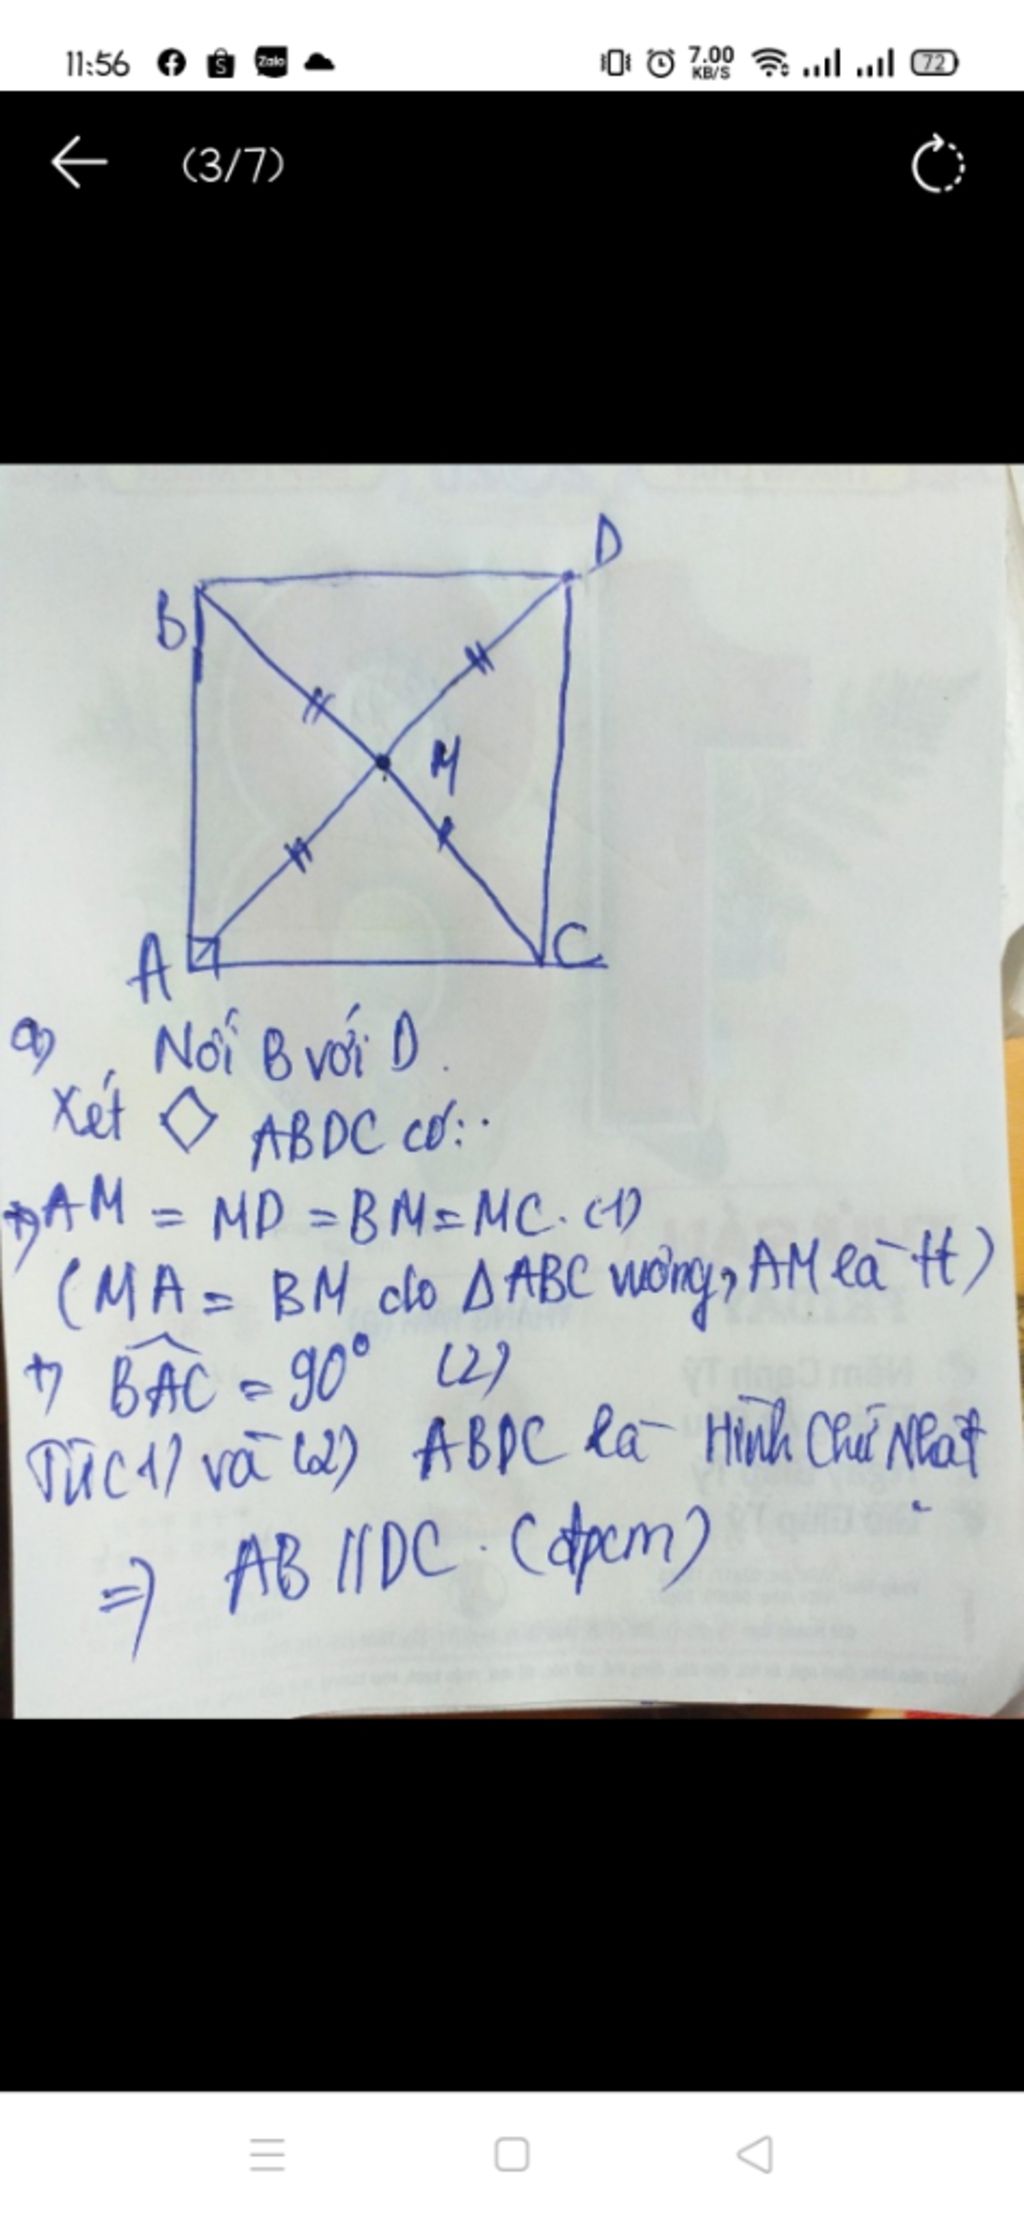 11:56
7.00
KB/S
72
(3/7)
B
D
M
A
C
a)
Nối B với D.
Xét ◇ ABDC có:
+) AM = MD = BM = MC. (1)
(MA = BM do ΔABC vuông, AM là tt)
+) BAC = 90° (2)
Từ (1) và (2) ABDC là Hình Chữ Nhật
=) AB // DC. (đpcm)